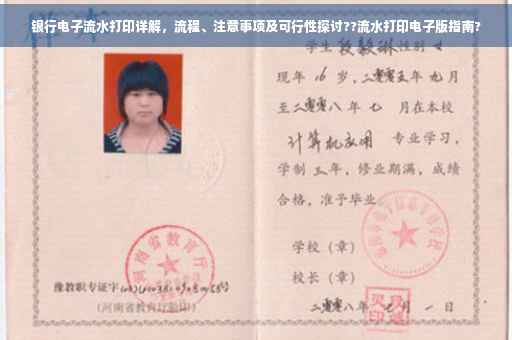 银行电子流水打印详解，流程、注意事项及可行性探讨??流水打印电子版指南?
学生段毅琳性别女
现年16岁，二零零五年九月
至二零零八年七月在本校
计算机应用 专业学习，
学制三年，修业期满，成绩
合格，准予毕业
学校（章）
校长（章）
二零零八年七月一日
河南省教育厅
豫教职专证字
（河南省教育厅验印）